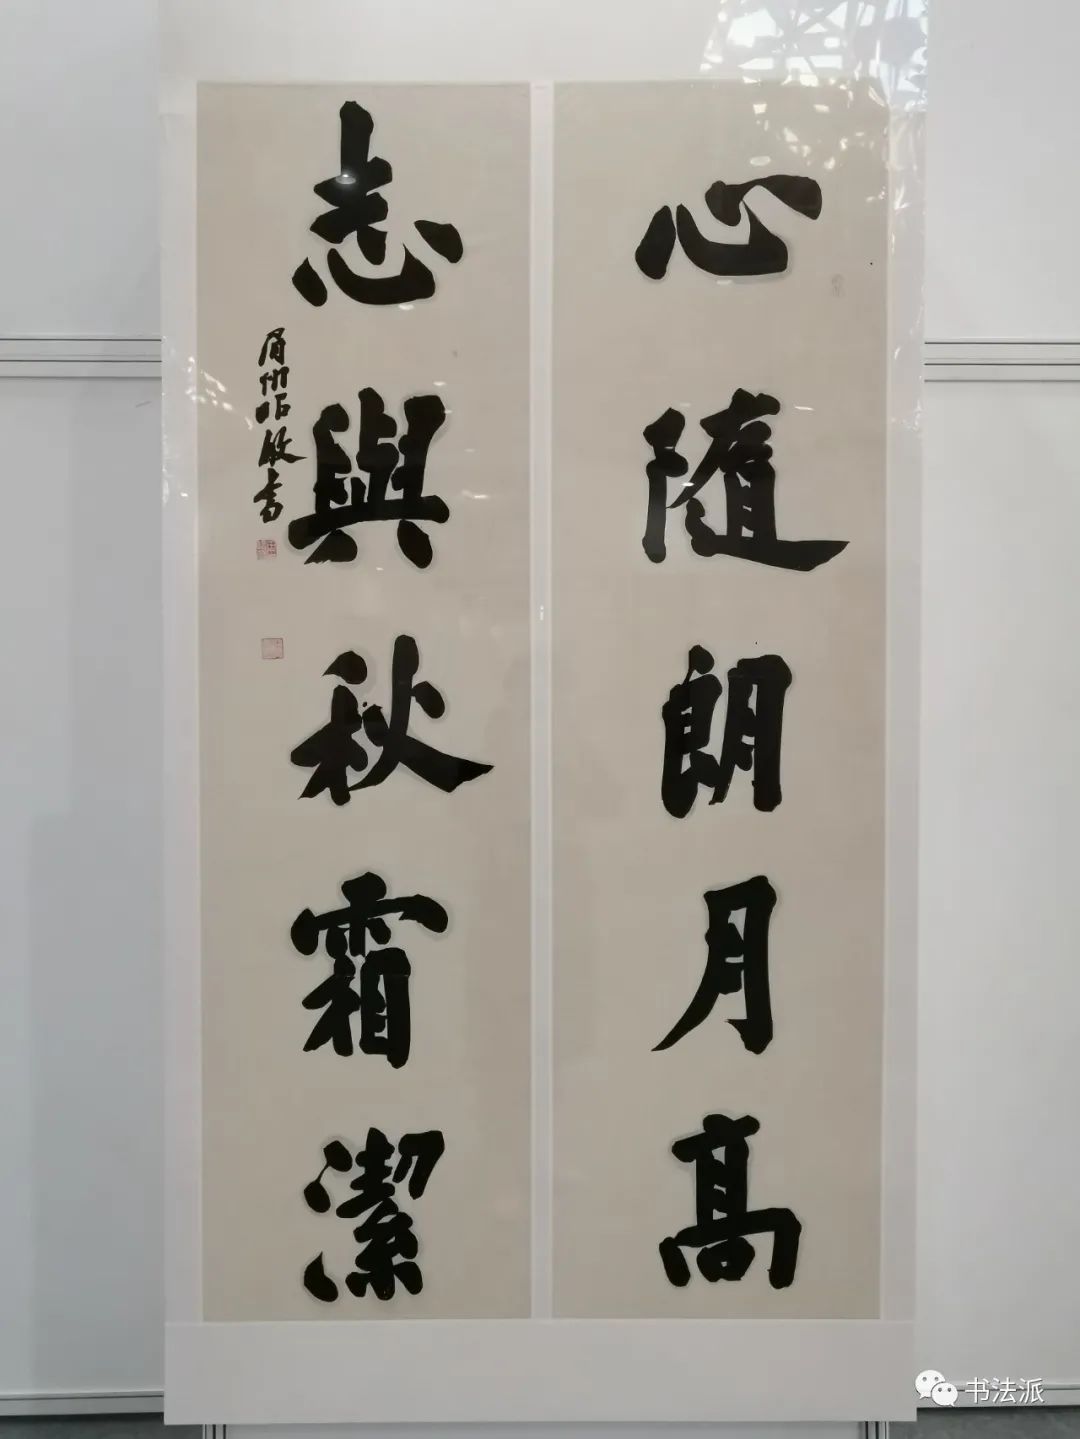 心隨朗月高
志與秋霜潔
眉州昭啟書
书法派